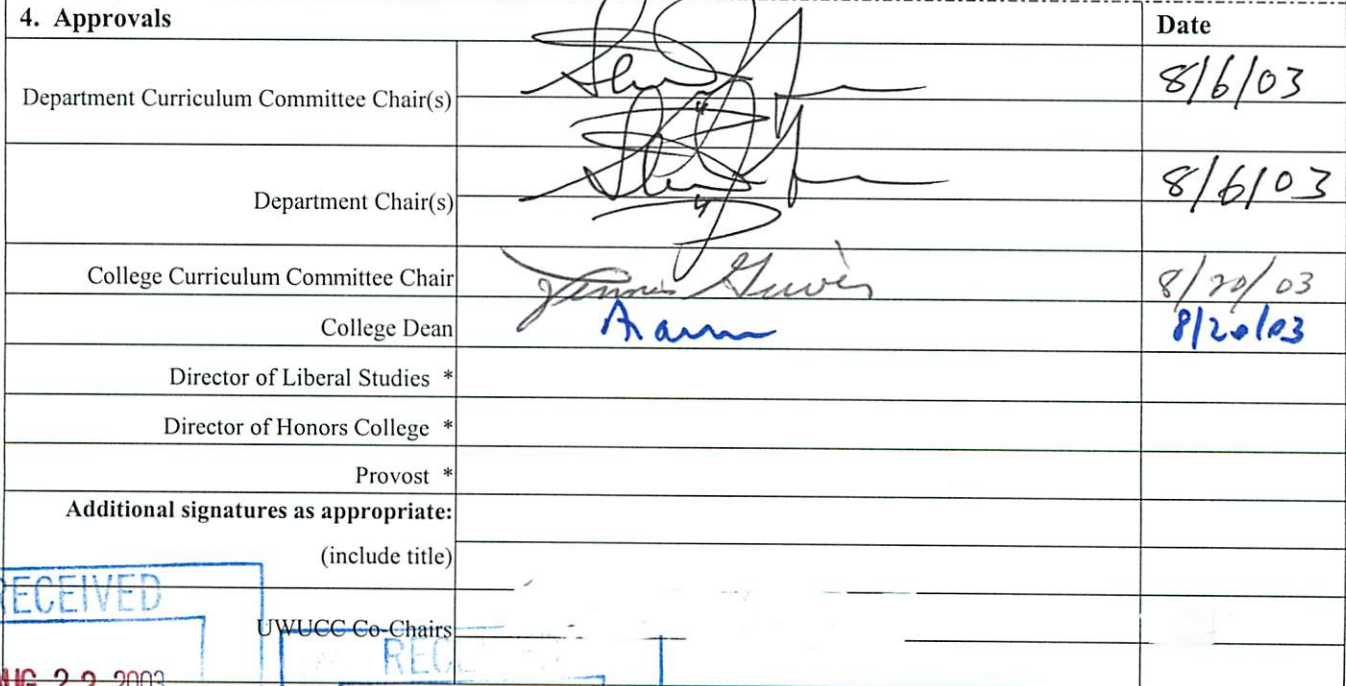 4. Approvals Date
Department Curriculum Committee Chair(s) 8/6/03
Department Chair(s) 8/6/03
College Curriculum Committee Chair 8/20/03
College Dean 8/20/03
Director of Liberal Studies *
Director of Honors College *
Provost *
Additional signatures as appropriate:
(include title)
RECEIVED
UWUCC Co-Chairs
REC
AUG 22 2003